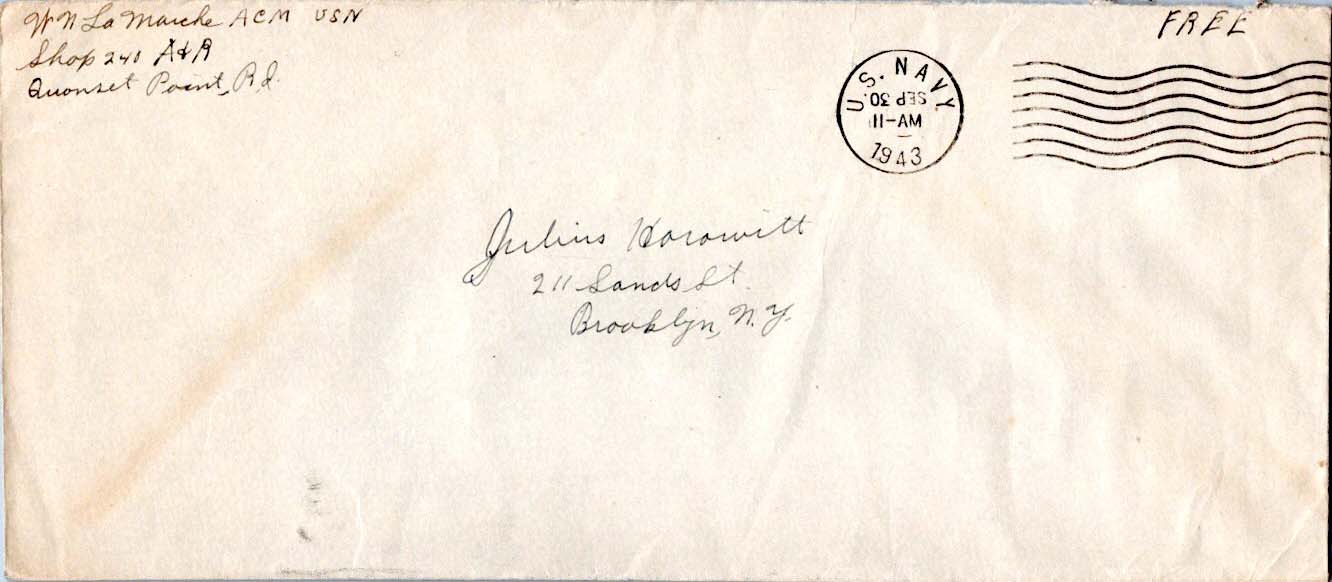 W N La Marche ACM USN
Shop 240 A&R
Quonset Point, R.I.
FREE
U.S. NAVY
SEP 30
11-AM
1943
Julius Horowitt
211 Sands St.
Brooklyn, N.Y.